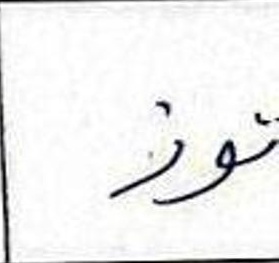 توز